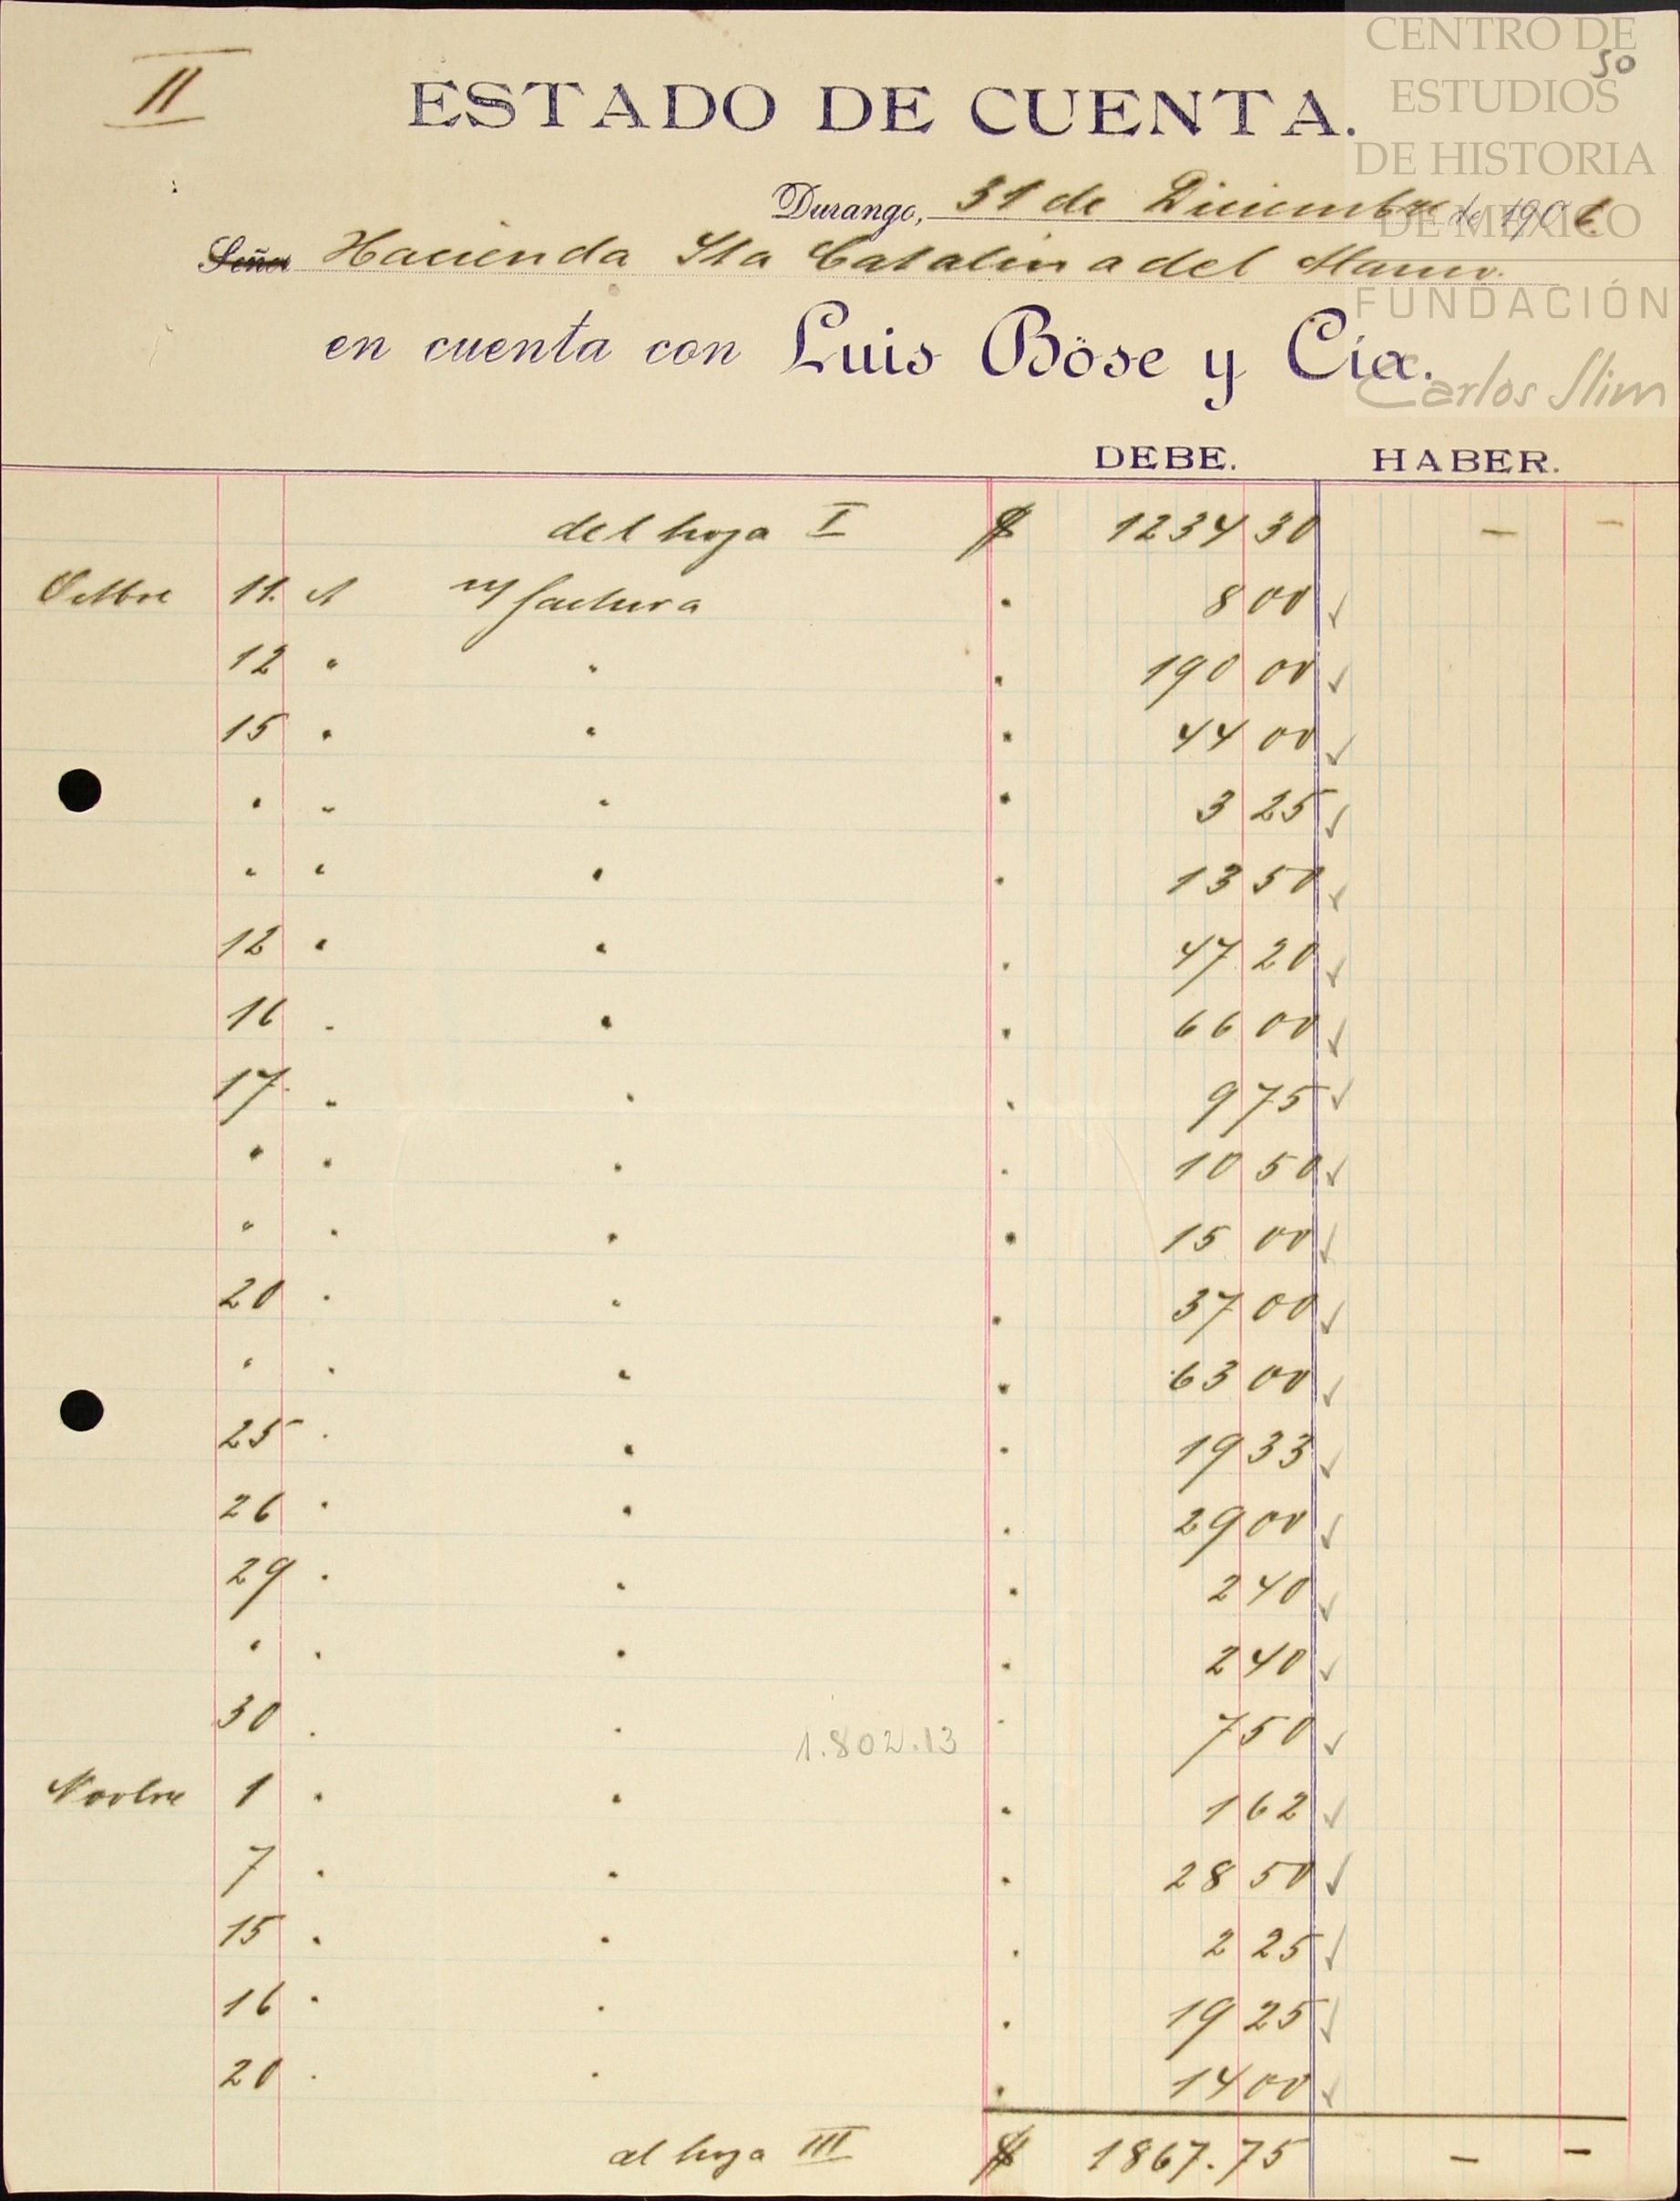 CENTRO DE
ESTUDIOS
DE HISTORIA
DE MEXICO
FUNDACIÓN
Carlos Slim
50
II
ESTADO DE CUENTA.
Durango, 31 de Diciembre de 1906
Señor Hacienda Sta Catalina del
en cuenta con Luis Böse y Cía.
DEBE. HABER.
del hoja I $ 1234 30 — —
Octbre 11. A m/ factura " 8 00 ✓
12 " " " 190 00 ✓
15 " " " 44 00 ✓
" " " " 3 25 ✓
" " " " 13 50 ✓
12 " " " 47 20 ✓
16 " " " 66 00 ✓
17 " " " 9 75 ✓
" " " " 10 50 ✓
" " " " 15 00 ✓
20 " " " 37 00 ✓
" " " " 63 00 ✓
25 " " " 19 33 ✓
26 " " " 29 00 ✓
29 " " " 2 40 ✓
" " " " 2 40 ✓
30 " " 1.802.13 " 7 50 ✓
Novbre 1 " " " 1 62 ✓
7 " " " 28 50 ✓
15 " " " 2 25 ✓
16 " " " 19 25 ✓
20 " " " 14 00 ✓
al hoja III $ 1867.75 — —